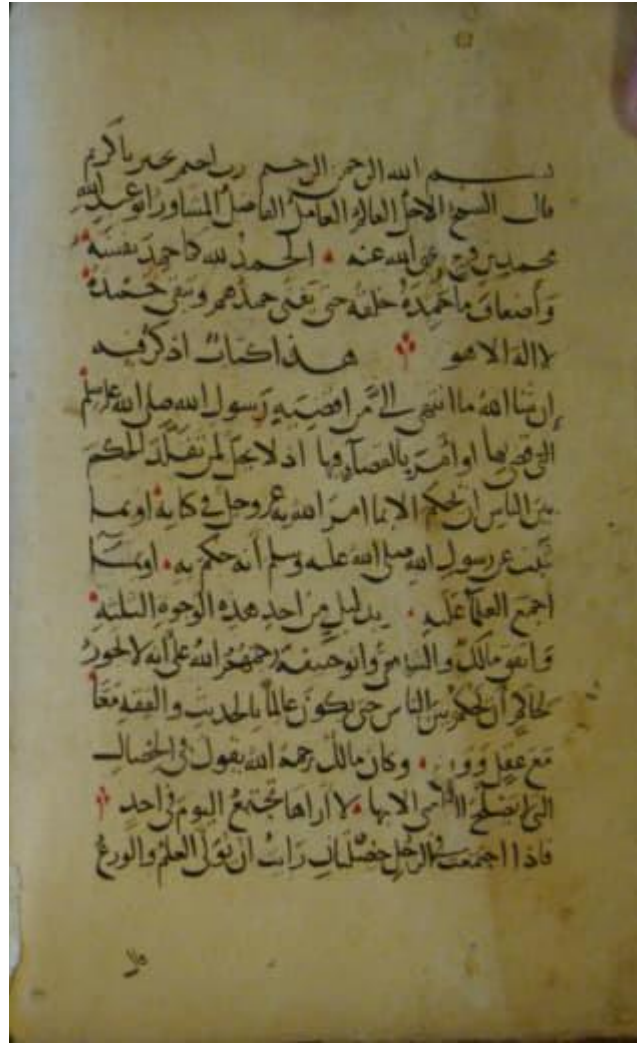 بسم الله الرحمن الرحيم رب اختم بخير يا كريم
قال الشيخ الاجل العالم العامل الفاضل المشاور ابو عبد الله
محمد بن فرج رضي الله عنه الحمد لله كما حمد نفسه
وأضعاف ما حمده خلقه حتى يفنى حمدهم ويبقى حمده
لا اله الا هو هذا كتاب اذكر فيه
إن شا الله ما انتهى الي من اقضية رسول الله صلى الله عليه وسلم
التي قضى بها او أمر بالقضاء فيها اذ لا يحل لمن تقلد الحكم
بين الناس ان يحكم الا بما امر الله به عز وجل في كتابه او بما
ثبت عن رسول الله صلى الله عليه وسلم أنه حكم به او بما
اجمع العلما عليه بدليل من احد هذه الوجوه الثلثة
واتفق مالك والشافعي وابو حنيفة رحمهم الله على انه لا يجوز
لحاكم أن يحكم بين الناس حتى يكون عالما بالحديث والفقه معا
مع عقل وورع وكان مالك رحمه الله يقول في الخصال
التي لا يصلح القاضي الا بها لا اراها تجتمع اليوم في احد
فاذا اجتمعت في الرجل خصلتان رأيت ان يولى العلم والورع